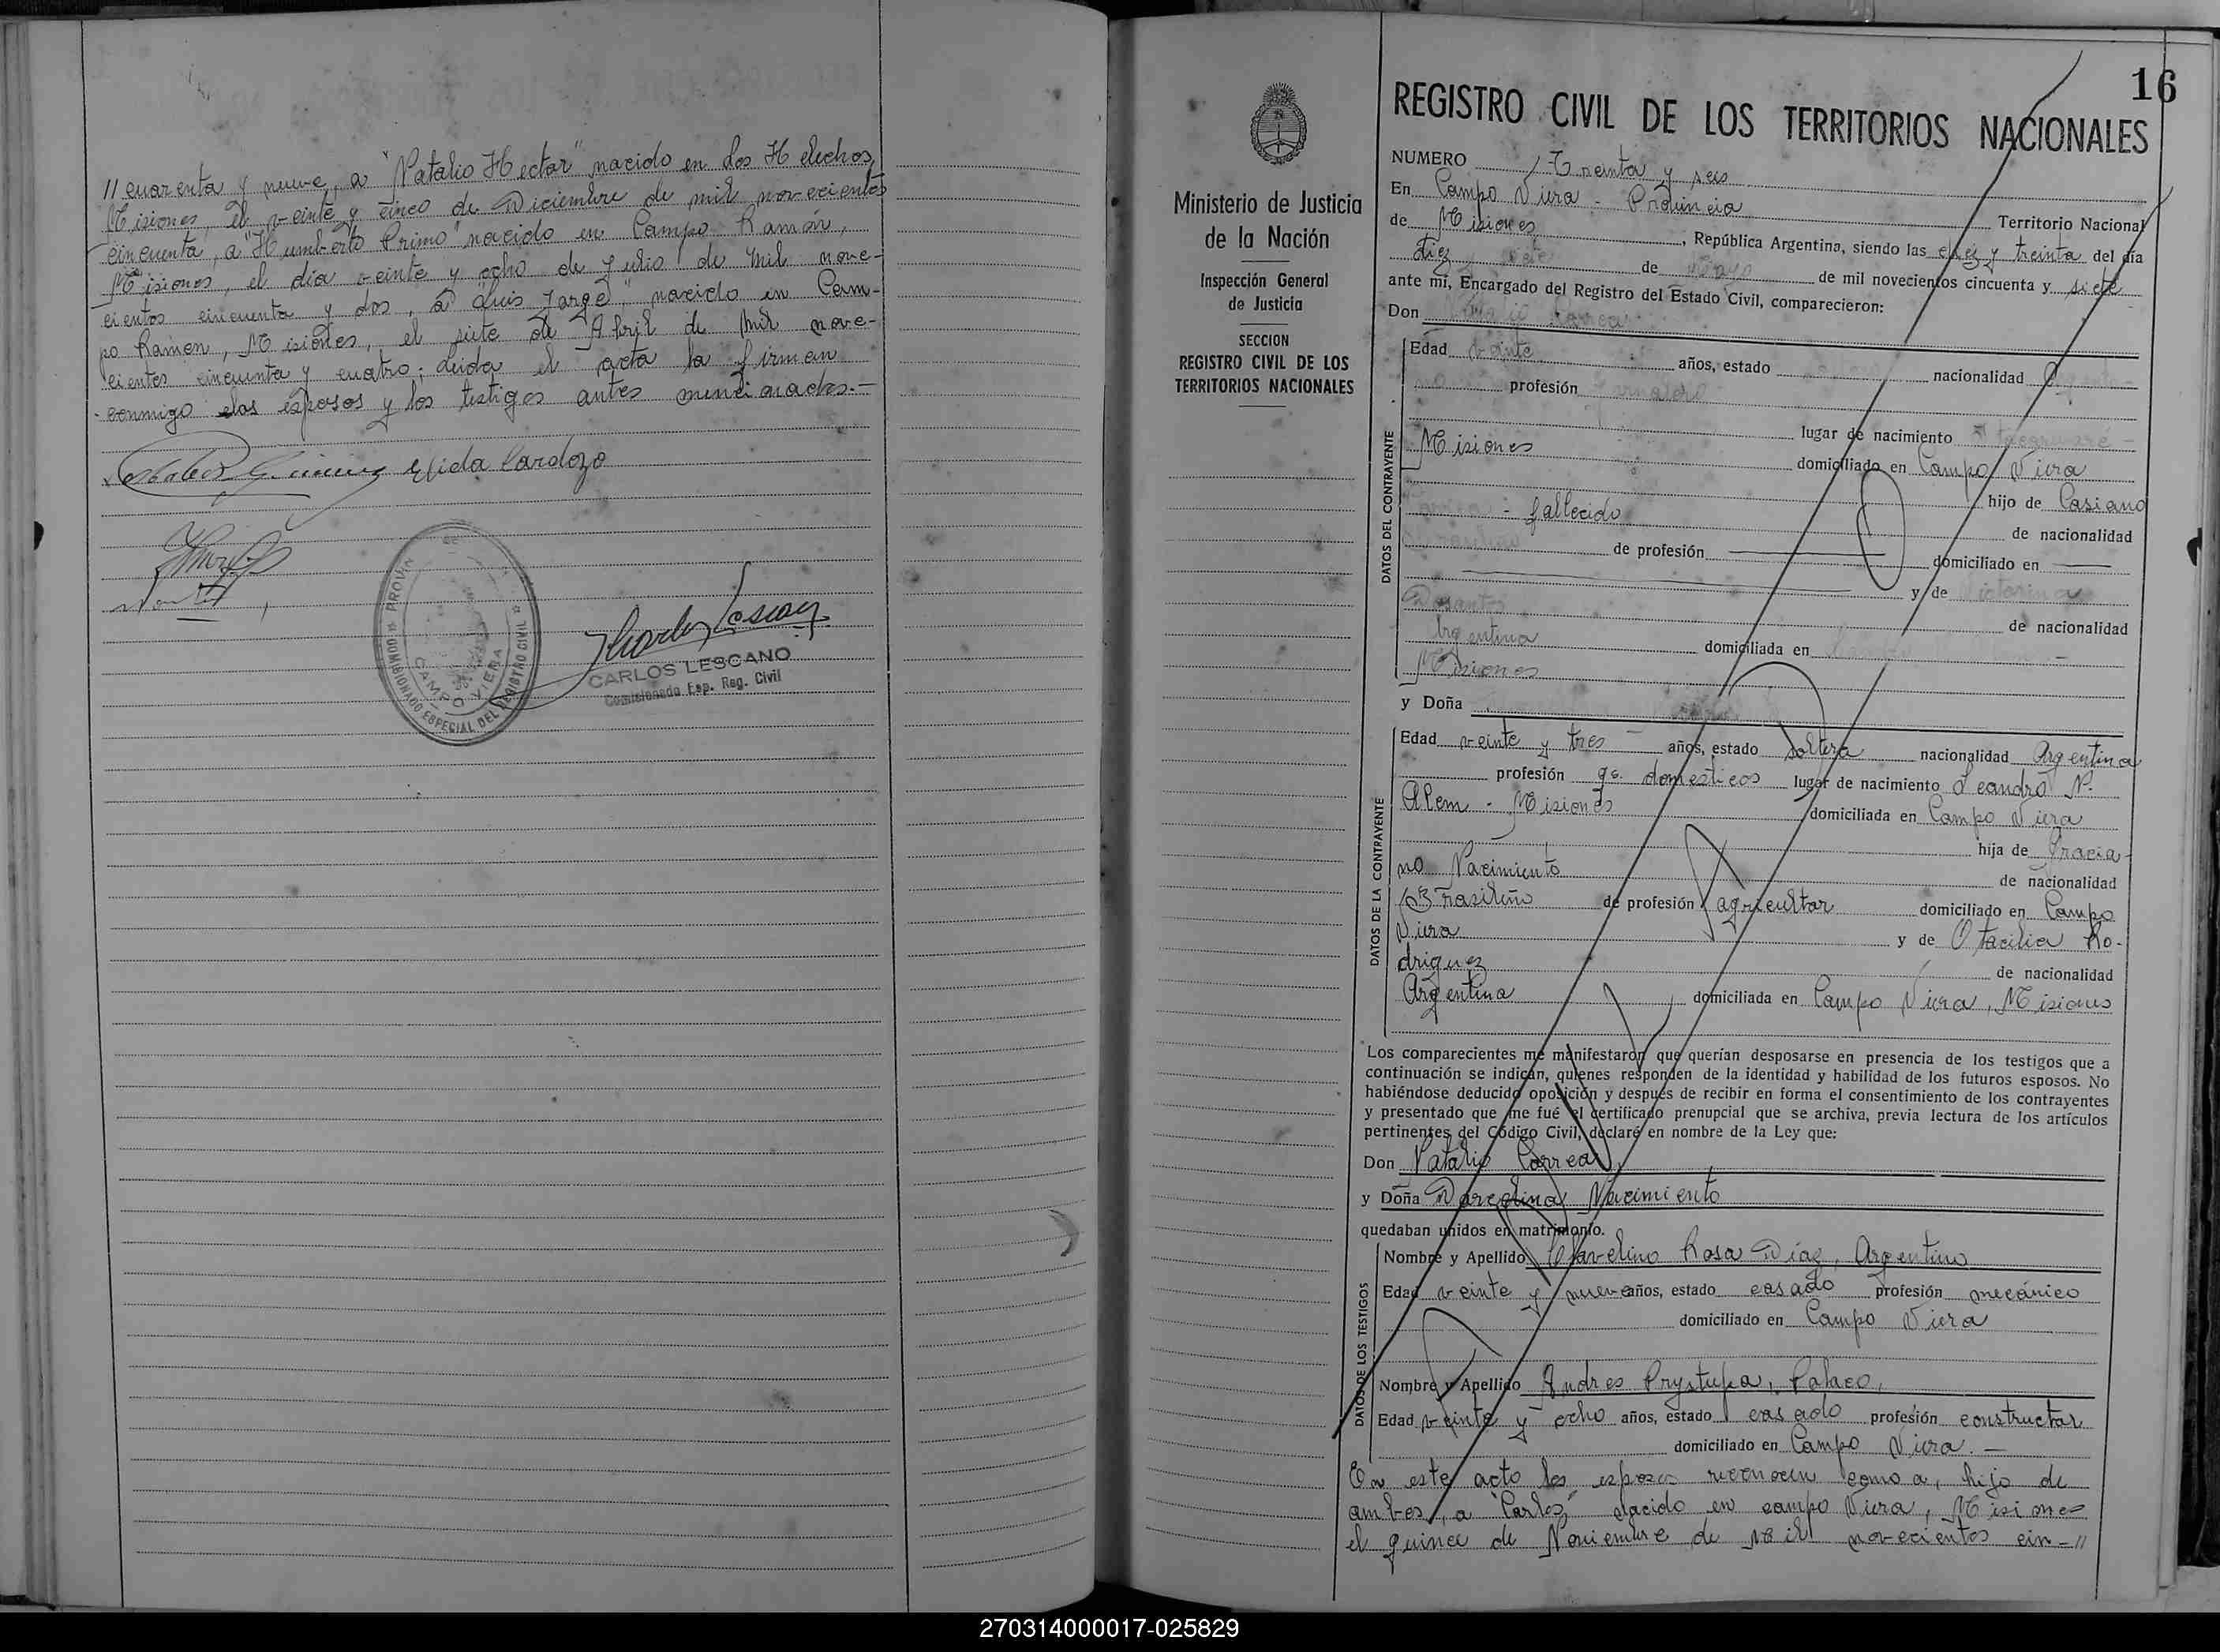 // cuarenta y nueve, a "Natalio Hectar" nacido en Los Helechos,
Misiones, el veinte y cinco de Diciembre de mil novecientos
cincuenta, a "Humberto Primo" nacido en Campo Ramón,
Misiones, el día veinte y ocho de Julio de mil nove-
cientos cincuenta y dos, a "Luis Jorge", nacido en Cam-
po Ramon, Misiones, el siete de Abril de mil nove-
cientos cincuenta y cuatro; Leida el acta la firman
conmigo los esposos y los testigos antes mencionados.-
Elida Cardozo
COMISIONADO ESPECIAL DEL REGISTRO CIVIL
CAMPO VIERA
CARLOS LESCANO
Comisionado Esp. Reg. Civil
16
Ministerio de Justicia
de la Nación
Inspección General
de Justicia
SECCION
REGISTRO CIVIL DE LOS
TERRITORIOS NACIONALES
REGISTRO CIVIL DE LOS TERRITORIOS NACIONALES
NUMERO Treinta y seis
En Campo Viera - Provincia
de Misiones Territorio Nacional
, República Argentina, siendo las diez y treinta del día
diez y siete de Mayo de mil novecientos cincuenta y siete
ante mí, Encargado del Registro del Estado Civil, comparecieron:
Don Natalio Correa
DATOS DEL CONTRAYENTE
Edad veinte años, estado nacionalidad Argenti-
no profesión Jornalero
lugar de nacimiento
Misiones domiciliado en Campo Viera
hijo de Casiano
Correa - fallecido de nacionalidad
Brasileño de profesión domiciliado en
y de Victorina
de nacionalidad
Argentina domiciliada en
Misiones
y Doña
DATOS DE LA CONTRAYENTE
Edad veinte y tres años, estado soltera nacionalidad Argentina
profesión qs. domesticos lugar de nacimiento Leandro N.
Alem - Misiones domiciliada en Campo Viera
hija de Gracia-
no Nacimiento de nacionalidad
Brasileño de profesión agricultor domiciliado en Campo
Viera y de Otacilia Ro-
driguez de nacionalidad
Argentina domiciliada en Campo Viera, Misiones
Los comparecientes me manifestaron que querían desposarse en presencia de los testigos que a
continuación se indican, quienes responden de la identidad y habilidad de los futuros esposos. No
habiéndose deducido oposición y después de recibir en forma el consentimiento de los contrayentes
y presentado que me fué el certificado prenupcial que se archiva, previa lectura de los artículos
pertinentes del Código Civil, declaré en nombre de la Ley que:
Don Natalio Correa
y Doña Darcelina Nacimiento
quedaban unidos en matrimonio.
DATOS DE LOS TESTIGOS
Nombre y Apellido Clavelino Rosa Diaz, Argentino
Edad veinte y nueve años, estado casado profesión mecánico
domiciliado en Campo Viera
Nombre y Apellido Andres Prystupa, Polaco,
Edad veinte y ocho años, estado casado profesión constructor
domiciliado en Campo Viera.-
En este acto los esposos reconocen como a, hijo de
ambos, a "Carlos" nacido en campo Viera, Misiones
el quince de Noviembre de mil novecientos cin-//
270314000017-025829